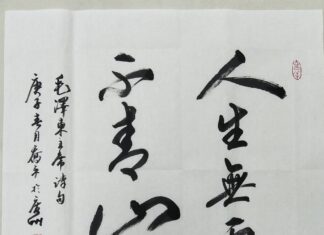 人生無
不青山
毛澤東主席詩句
庚子春月於廣州